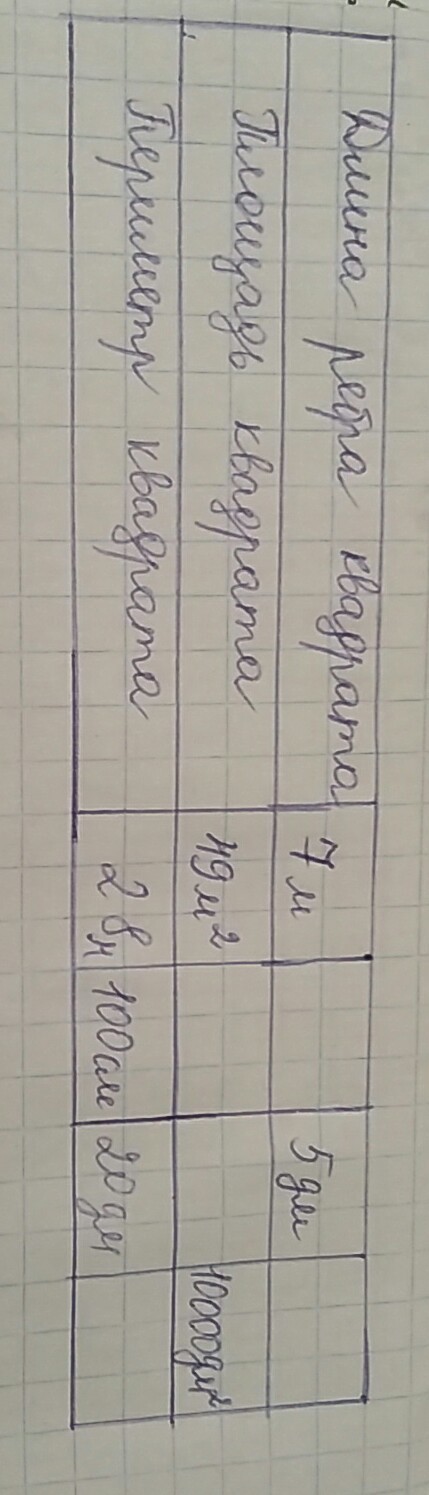 Длина ребра квадрата 7 м 5 дм
Площадь квадрата 49 м² 10000 дм²
Периметр квадрата 28 м 100 см 20 дм